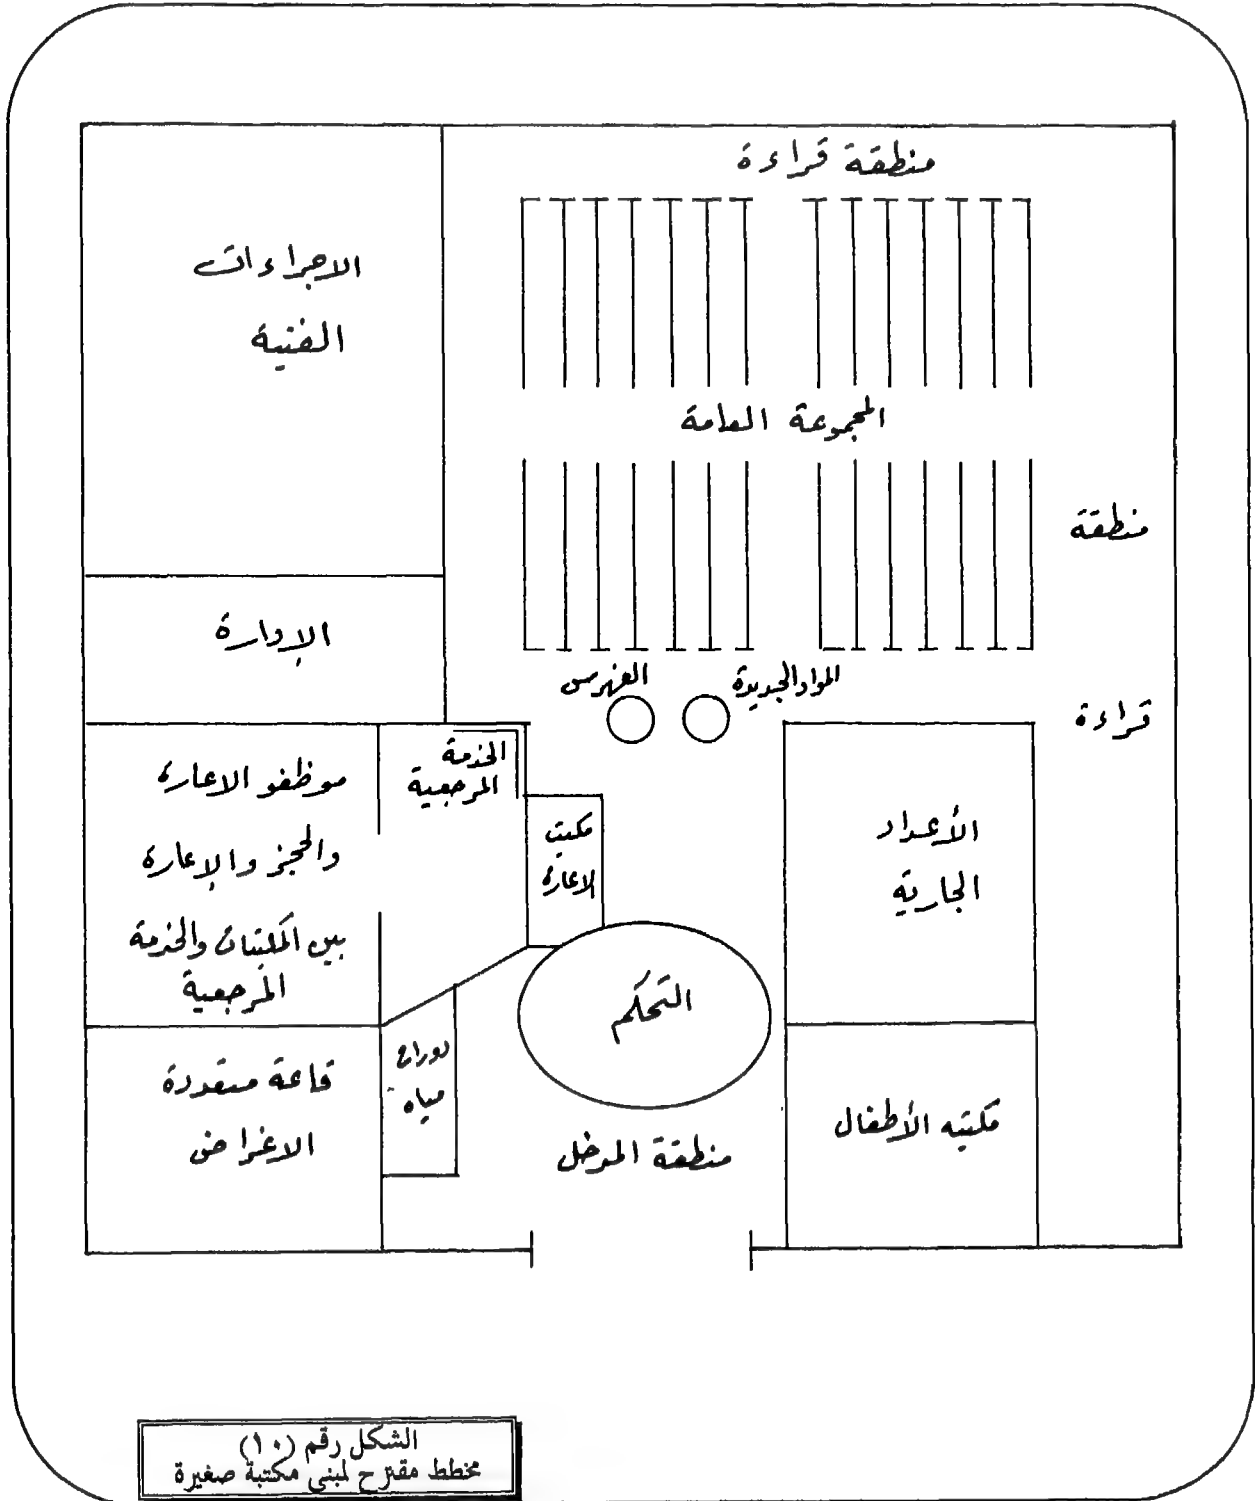 منطقة قراءة
الاجراءات
الفنية
المجموعة العامة
منطقة
قراءة
الإدارة
الفهرس
المواد الجديدة
الخدمة
المرجعية
موظفو الاعارة
والحجز والإعارة
بين المكتبات والخدمة
المرجعية
مكتب
الاعارة
الأعداد
الجارية
التحكم
دورات
مياه
قاعة متعددة
الاغراض
منطقة المدخل
مكتبه الأطفال
الشكل رقم (١٠)
مخطط مقترح لمبنى مكتبة صغيرة